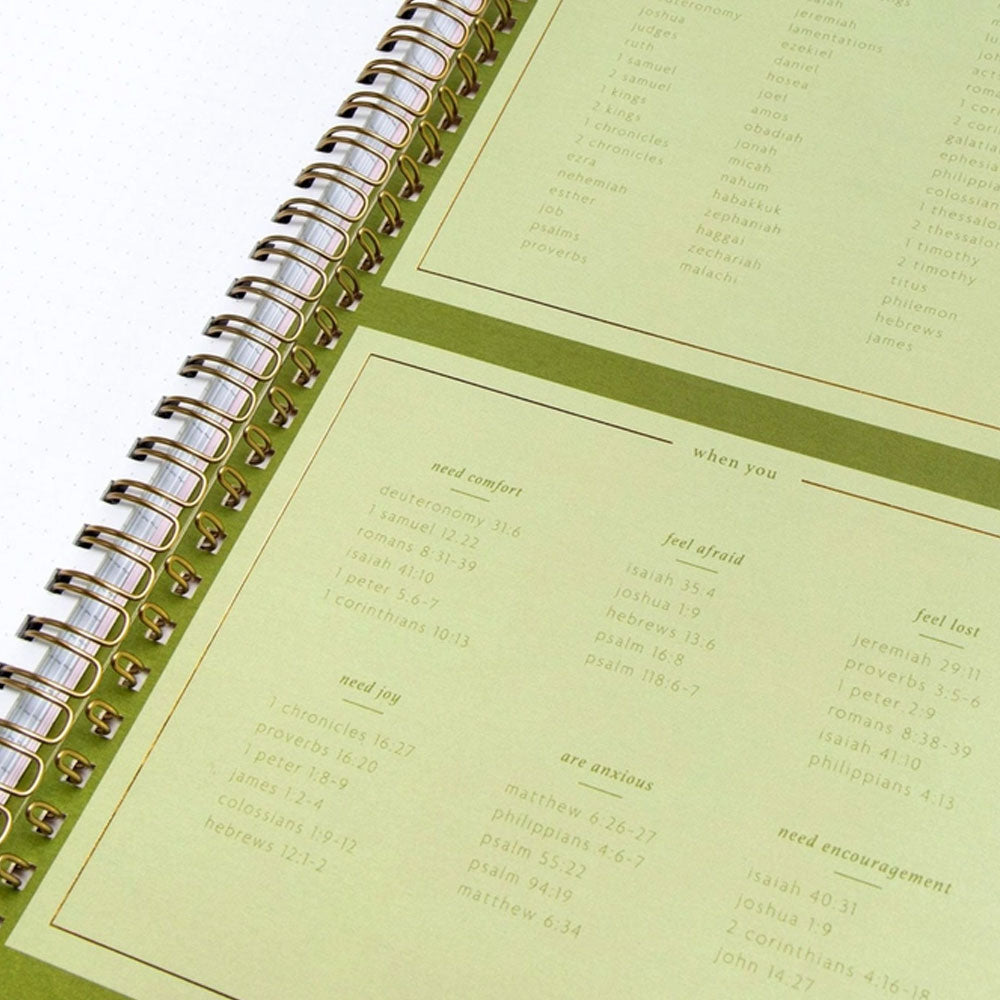 deuteronomy
joshua
judges
ruth
1 samuel
2 samuel
1 kings
2 kings
1 chronicles
2 chronicles
ezra
nehemiah
esther
job
psalms
proverbs
isaiah
jeremiah
lamentations
ezekiel
daniel
hosea
joel
amos
obadiah
jonah
micah
nahum
habakkuk
zephaniah
haggai
zechariah
malachi
1 timothy
2 timothy
titus
philemon
hebrews
james
when you
need comfort
deuteronomy 31:6
1 samuel 12:22
romans 8:31-39
isaiah 41:10
1 peter 5:6-7
1 corinthians 10:13
need joy
1 chronicles 16:27
proverbs 16:20
1 peter 1:8-9
james 1:2-4
colossians 1:9-12
hebrews 12:1-2
feel afraid
isaiah 35:4
joshua 1:9
hebrews 13:6
psalm 16:8
psalm 118:6-7
are anxious
matthew 6:26-27
philippians 4:6-7
psalm 55:22
psalm 94:19
matthew 6:34
feel lost
jeremiah 29:11
proverbs 3:5-6
1 peter 2:9
romans 8:38-39
isaiah 41:10
philippians 4:13
need encouragement
isaiah 40:31
joshua 1:9
2 corinthians 4:16-18
john 14:27